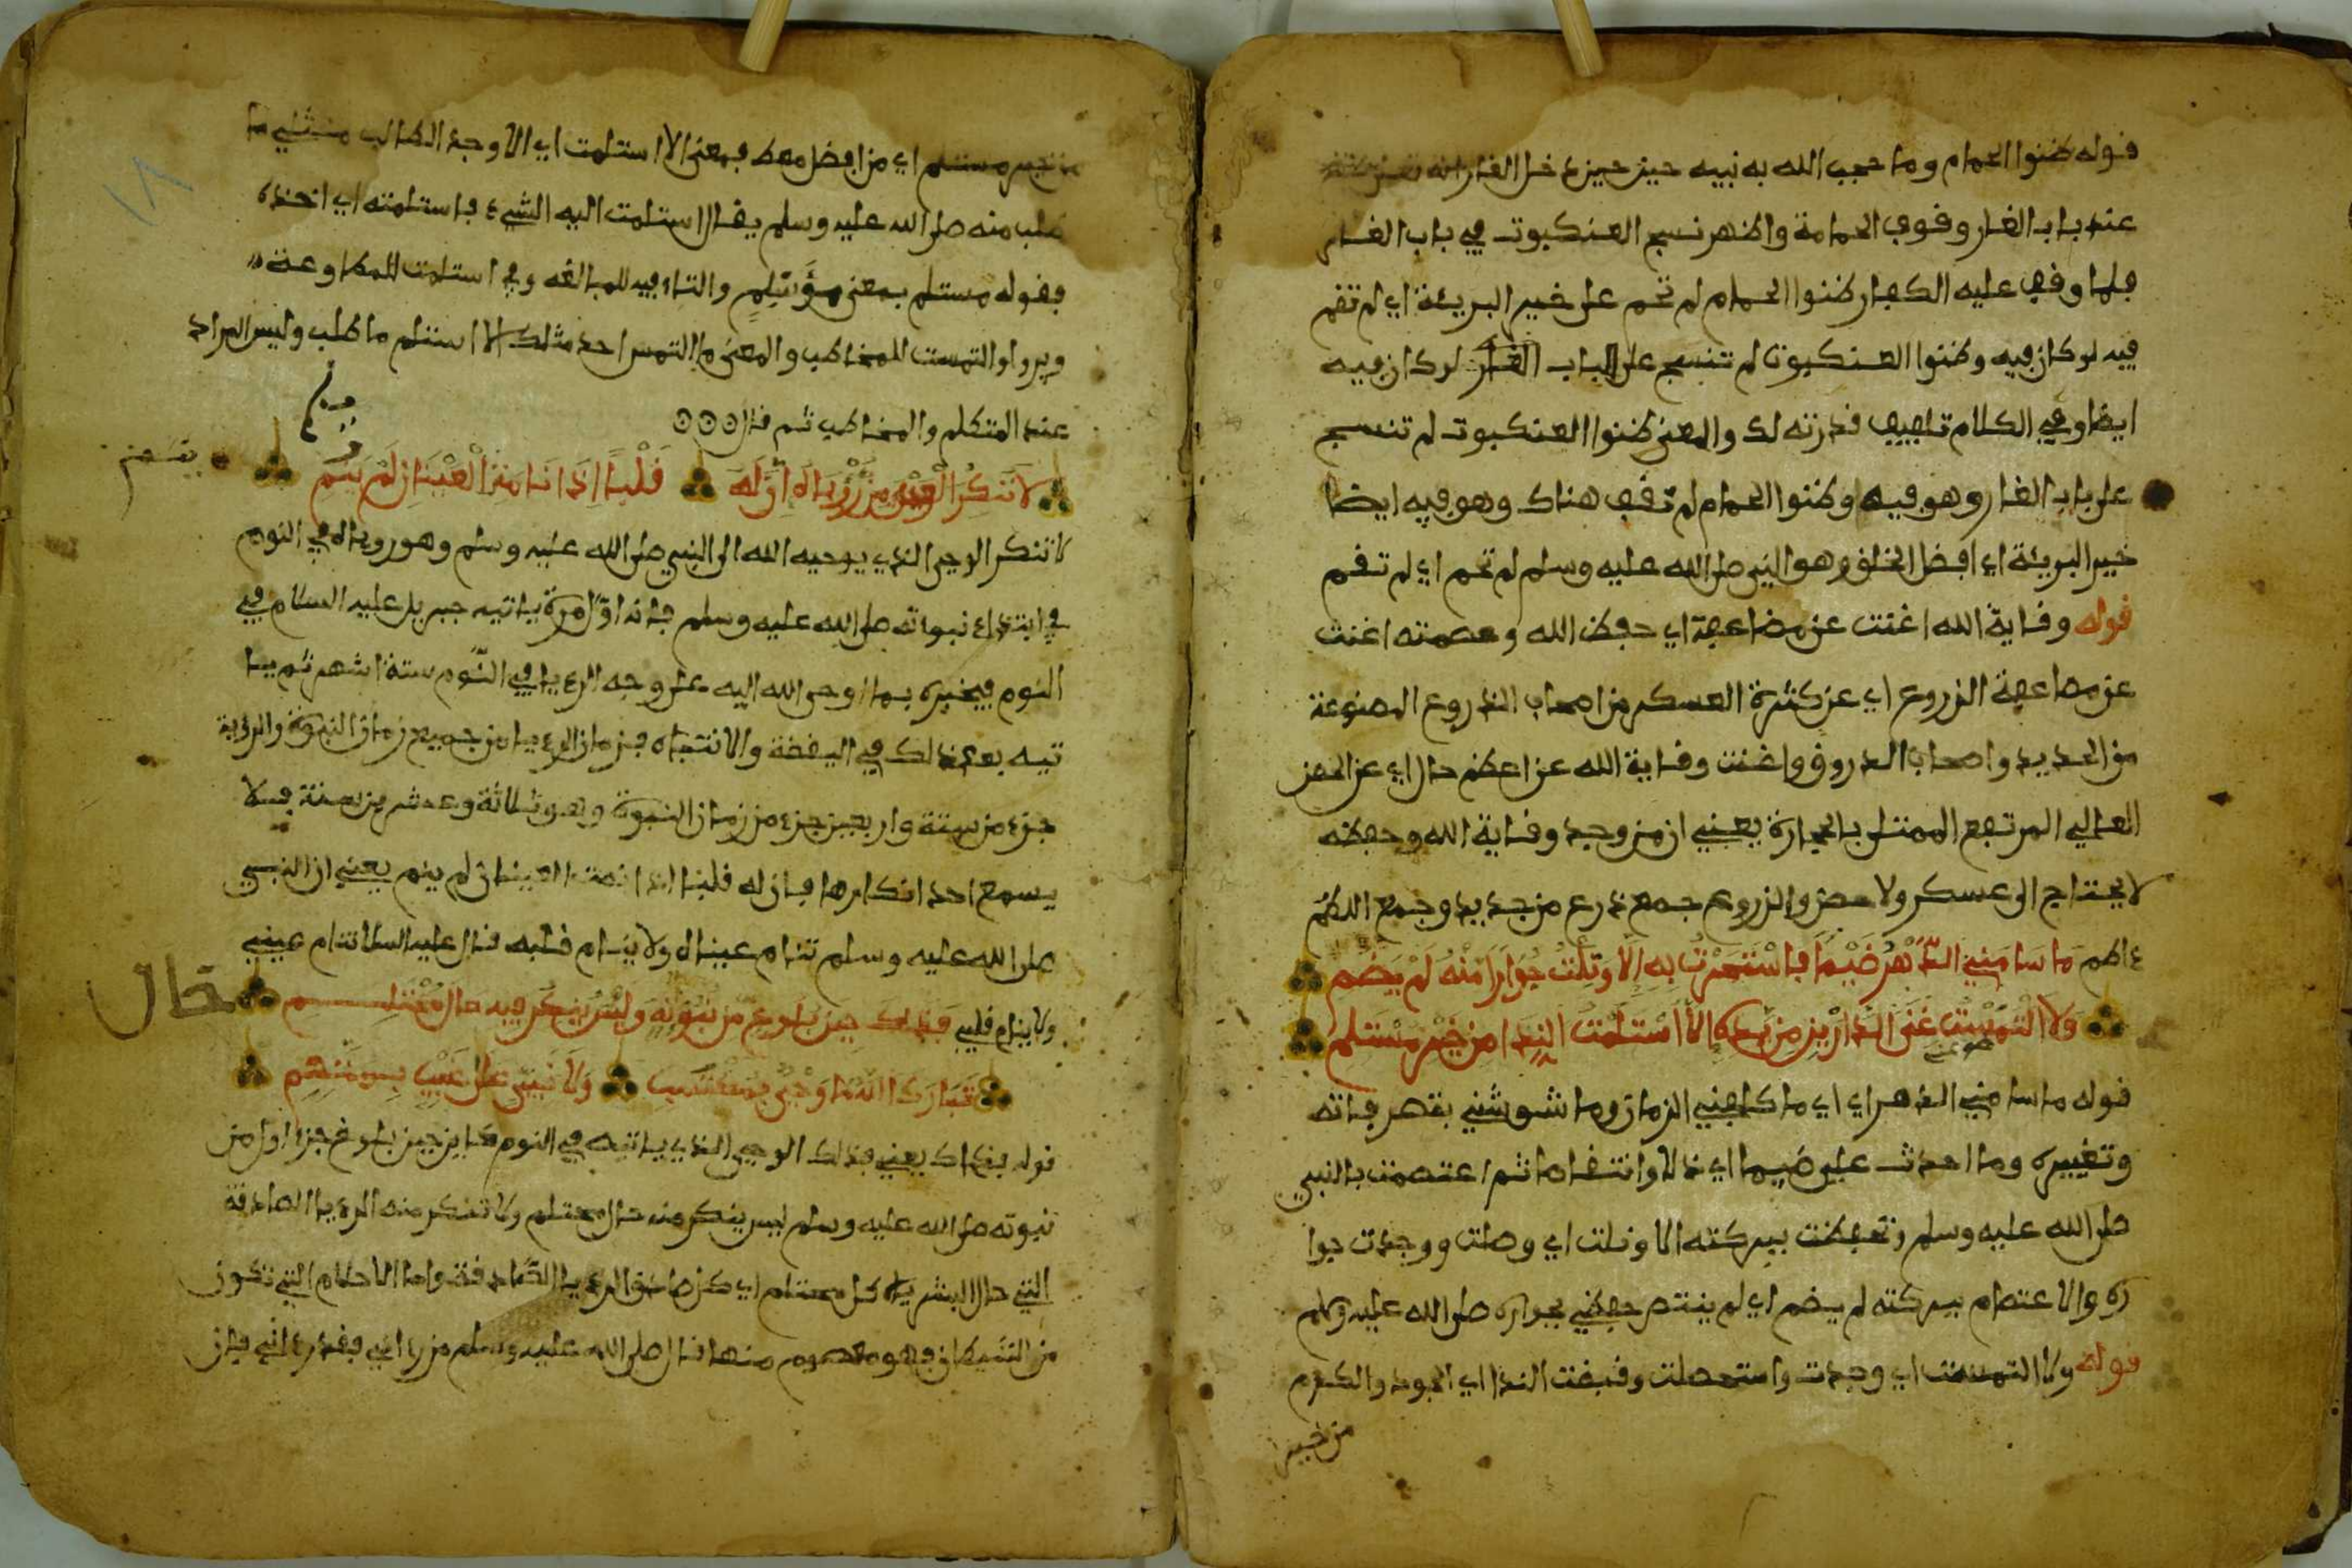 قوله ظنوا الحمام وما حجب الله به نبيه حين حين دخل الغار انه
عند باب الغار وقوف الحمامة واظهر نسج العنكبوت في باب الغار
فلما وقف عليه الكفار ظنوا الحمام لم تحم على خير البريئة اي لم تقم
فيه لو كان فيه وظنوا العنكبوت لم تنسج على الباب الغار لو كان فيه
ايضا وفي الكلام تلفيف قدرته لك والمعنى ظنوا العنكبوت لم تنسج
على باب الغار وهو فيه وظنوا الحمام لم تقف هناك وهو فيه ايضا
خير البريئة اي افضل الخلق وهو النبي صلى الله عليه وسلم لم تحم اي لم تقم
قوله وقاية الله اغنت عن مضاعفة اي حفظ الله وعصمته اغنت
عن مضاعفة الدروع اي عن كثرة العسكر من اصحاب الدروع المصنوعة
من الحديد واصحاب الدروق واغنت وقاية الله عن اعظم حال اي عن الحصن
العالي المرتفع الممتلى بالحجارة يعني ان من وجد وقاية الله وحفظه
لا يحتاج الى عسكر ولا حصن والدروع جمع درع من حديد وجمع اللطم
ءاطم مَا سَامَنِي الدَّهْرُ ضَيْمًا فَاسْتَجَرْتُ بِهِ إِلَّا وَنِلْتُ جِوَارًا مِنْهُ لَمْ يُضَمِ
وَلَا الْتَمَسْتُ غِنَى الدَّارَيْنِ مِنْ يَدِهِ إِلَّا اسْتَلَمْتُ النَّدَا مِنْ خَيْرِ مُسْتَلَمِ
قوله ما سامني الدهر اي اي ما كلفني الزمان وما شوشني بتصرفاته
وتغييره وما احدث علي ضيما اي ذلا وانتقاصا ثم اعتصمت بالنبي
صلى الله عليه وسلم وتحفظت ببركته الا ونلت اي وصلت ووجدت جوا
ره والاعتصام ببركته لم يضم اي لم ينتقص حفظني بجواره صلى الله عليه وسلم
قوله ولا التمست اي وجدت واستحصلت وقبضت الندا اي الجود والكرم
من خير
من خير مستلم اي من افضل معط فمعنى الا استلمت اي الا وجد الطالب
طلب منه صلى الله عليه وسلم يقال استلمت اليه الشيء فاستلمته اي اخذه
فقوله مستلم بمعنى والتاء فيه للمبالغة وفي استلمت للمطاوعة
ويروا والتمست للمخاطب والمعنى ما التمس احد مثلك الا استلم ما طلب وليس المراد
عند المتكلم والمخاطب ثم قال
لَا تُنْكِرِ الْوَحْيَ مِنْ رُؤْيَاهُ إِنَّ لَهُ قَلْبًا إِذَا نَامَتِ الْعَيْنَانِ لَمْ يَنَمِ
لا تنكر الوحي الذي يوحيه الله الى النبي صلى الله عليه وسلم وهو روياه في النوم
في ابتداء نبوءته صلى الله عليه وسلم فانه اول مرة ياتيه جبريل عليه السلام في
النوم فيخبره بما اوحى الله اليه على وجه الرءيا في النوم ستة اشهر ثم يا
تيه بعد ذلك في اليقظة والانتباه فزمان الرءيا من جميع زمان النبوة والرؤية
جزء من ستة واربعين جزء من زمان النبوة وهو ثلاثة وعشرين سنة فلا
يسمع احد انكارها فان له قلبا اذا نمت العينان لم ينم يعني ان النبي
صلى الله عليه وسلم تنام عيناه ولا ينام قلبه قال عليه السلام تنام عيني
ولا ينام قلبي فَذَاكَ حِينَ بُلُوغٍ مِنْ نُبُوَّتِهِ وَلَيْسَ يُنْكَرُ فِيهِ حَالُ مُحْتَلِمِ
حال
تَبَارَكَ اللَّهُ مَا وَحْيٌ بِمُكْتَسَبٍ وَلَا نَبِيٌّ عَلَى غَيْبٍ بِمُتَّهَمِ
قوله فذاك يعني فذلك الوحي الذي ياتيه في النوم كاين حين بلوغ جزء اول من
نبوته صلى الله عليه وسلم ليس ينكر منه حال محتلم ولا تنكر منه الرءيا الصادقة
التي حال البشرية كل محتلم اي كل صادق الرءيا الصادقة واما الاحلام التي تكون
من الشيطان فهو معصوم منها قال صلى الله عليه وسلم من رءاني فقد رءاني فان